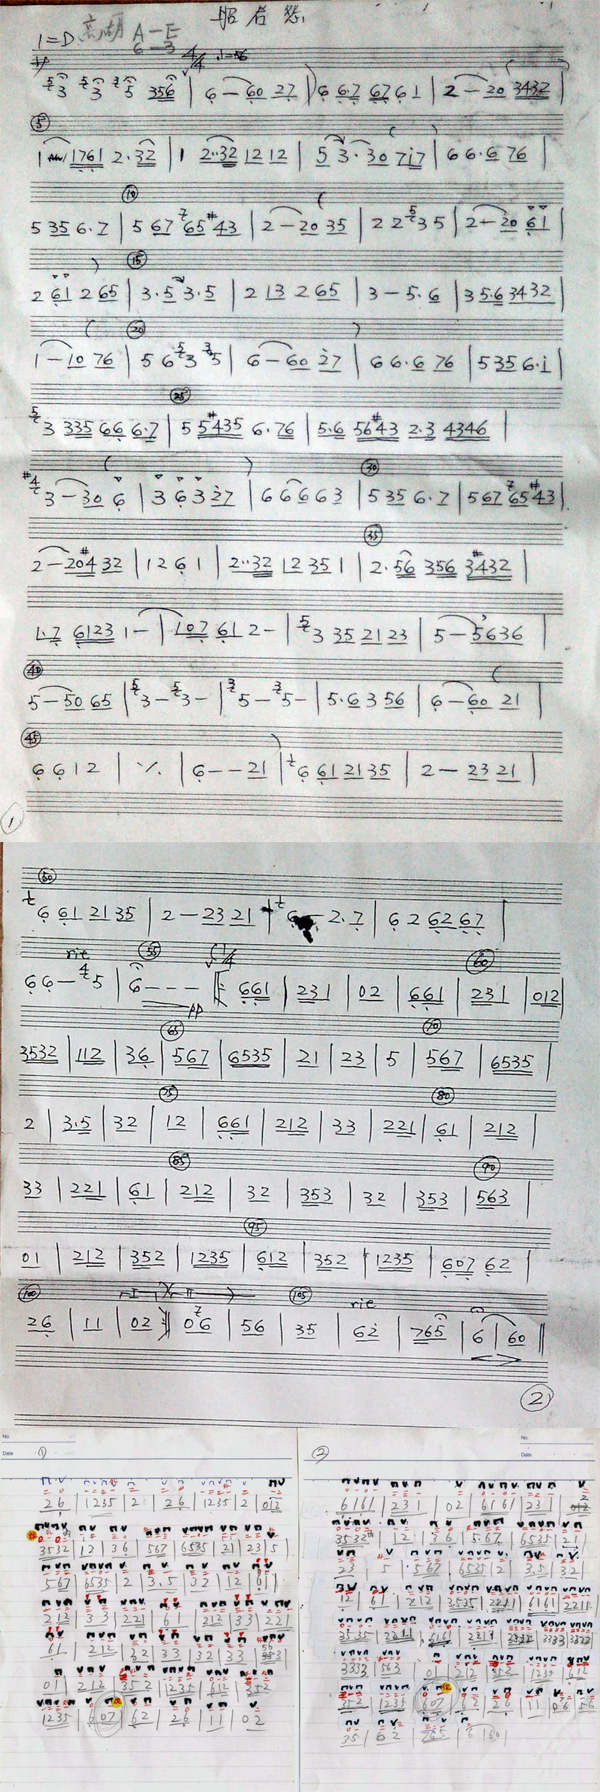 昭君怨
1=D 高胡 A—E
6—3
4/4 ♩=56
3 3 5 356 | 6 — 60 27 | 6 67 67 61 | 2 — 20 3432 |
⑤
1 1761 2·32 | 1 2··32 12 12 | 5 3·30 7i7 | 66·6 76 |
⑩
5 35 6·7 | 5 67 65 #43 | 2 — 20 35 | 2 2 5 3 5 | 2 — 20 61 |
⑮
2 61 2 65 | 3·5 3·5 | 2 13 2 65 | 3 — 5·6 | 3 5·6 3432 |
⑳
1 — 10 76 | 5 6 5 3 3 5 | 6 — 60 27 | 66·6 76 | 5 35 6·i |
㉕
5 3 335 66 6·7 | 5 5#435 6·76 | 5·6 56#43 2·3 4346 |
㉚
#4 3 — 30 6 | 3 6 3 27 | 6 6 6 6 3 | 5 35 6·7 | 5 67 65 #43 |
㉟
2 — 20#4 32 | 1 2 6 1 | 2··32 12 35 1 | 2·56 356 3#432 |
1·7 6123 1 — | 107 61 2 — | 5 3 35 21 23 | 5 — 5636 |
㊵
5 — 50 65 | 5 3 — 5 3 — | 3 5 — 3 5 — | 5·6 3 56 | 6 — 60 21 |
㊺
6 6 1 2 | ·/. | 6 — — 21 | 6 61 21 35 | 2 — 23 21 |
①
㊿
6 61 21 35 | 2 — 23 21 | 6 — 2·7 | 6 2 62 67 |
rie 55
6 6 — 4 5 | 6 — — — 1/4 | 661 | 231 | 02 | 661 | 231 | 012 |
pp 60
65 70
3532 | 112 | 36 | 567 | 6535 | 21 | 23 | 5 | 567 | 6535 |
75 80
2 | 3·5 | 32 | 12 | 661 | 212 | 33 | 221 | 61 | 212 |
85 90
33 | 221 | 61 | 212 | 32 | 353 | 32 | 353 | 563 |
95
01 | 212 | 352 | 1235 | 612 | 352 | 1235 | 607 62 |
100 I II 105 rie
26 | 11 | 02 | 06 | 56 | 35 | 62 | 765 | 6 | 60 ||
②
No.
Date ①
26 | 1235 | 2 | 26 | 1235 | 2 | 012
3532 | 12 | 36 | 567 | 6535 | 21 | 23 | 5 |
567 | 6535 | 2 | 3.5 | 32 | 12 | 61 |
212 | 33 | 221 | 61 | 212 | 33 | 221
61 | 212 | 32 | 33 | 32 | 33 |
01 | 212 | 352 | 1235 | 612 | 352
1235 | 607 | 62 | 26 | 11 | 02
No.
Date
②
6161 | 231 | 02 | 6161 | 231 | 012
3532 | 12 | 36 | 567 | 6535 | 21 |
23 | 5 | 567 | 6535 | 2 | 3.5 | 32 |
12 | 61 | 212 | 3535 | 2211 | 6161 | 2211
3535 | 2211 | 6161 | 2311 | 3332 | 3333 | 3322
3333 | 563 | 01 | 212 | 352 | 1235 | 612
352 | 1235 | 607 | 62 | 26 | 11 | 06 | 56
35 | 62 | 765 | 6 | 60 |